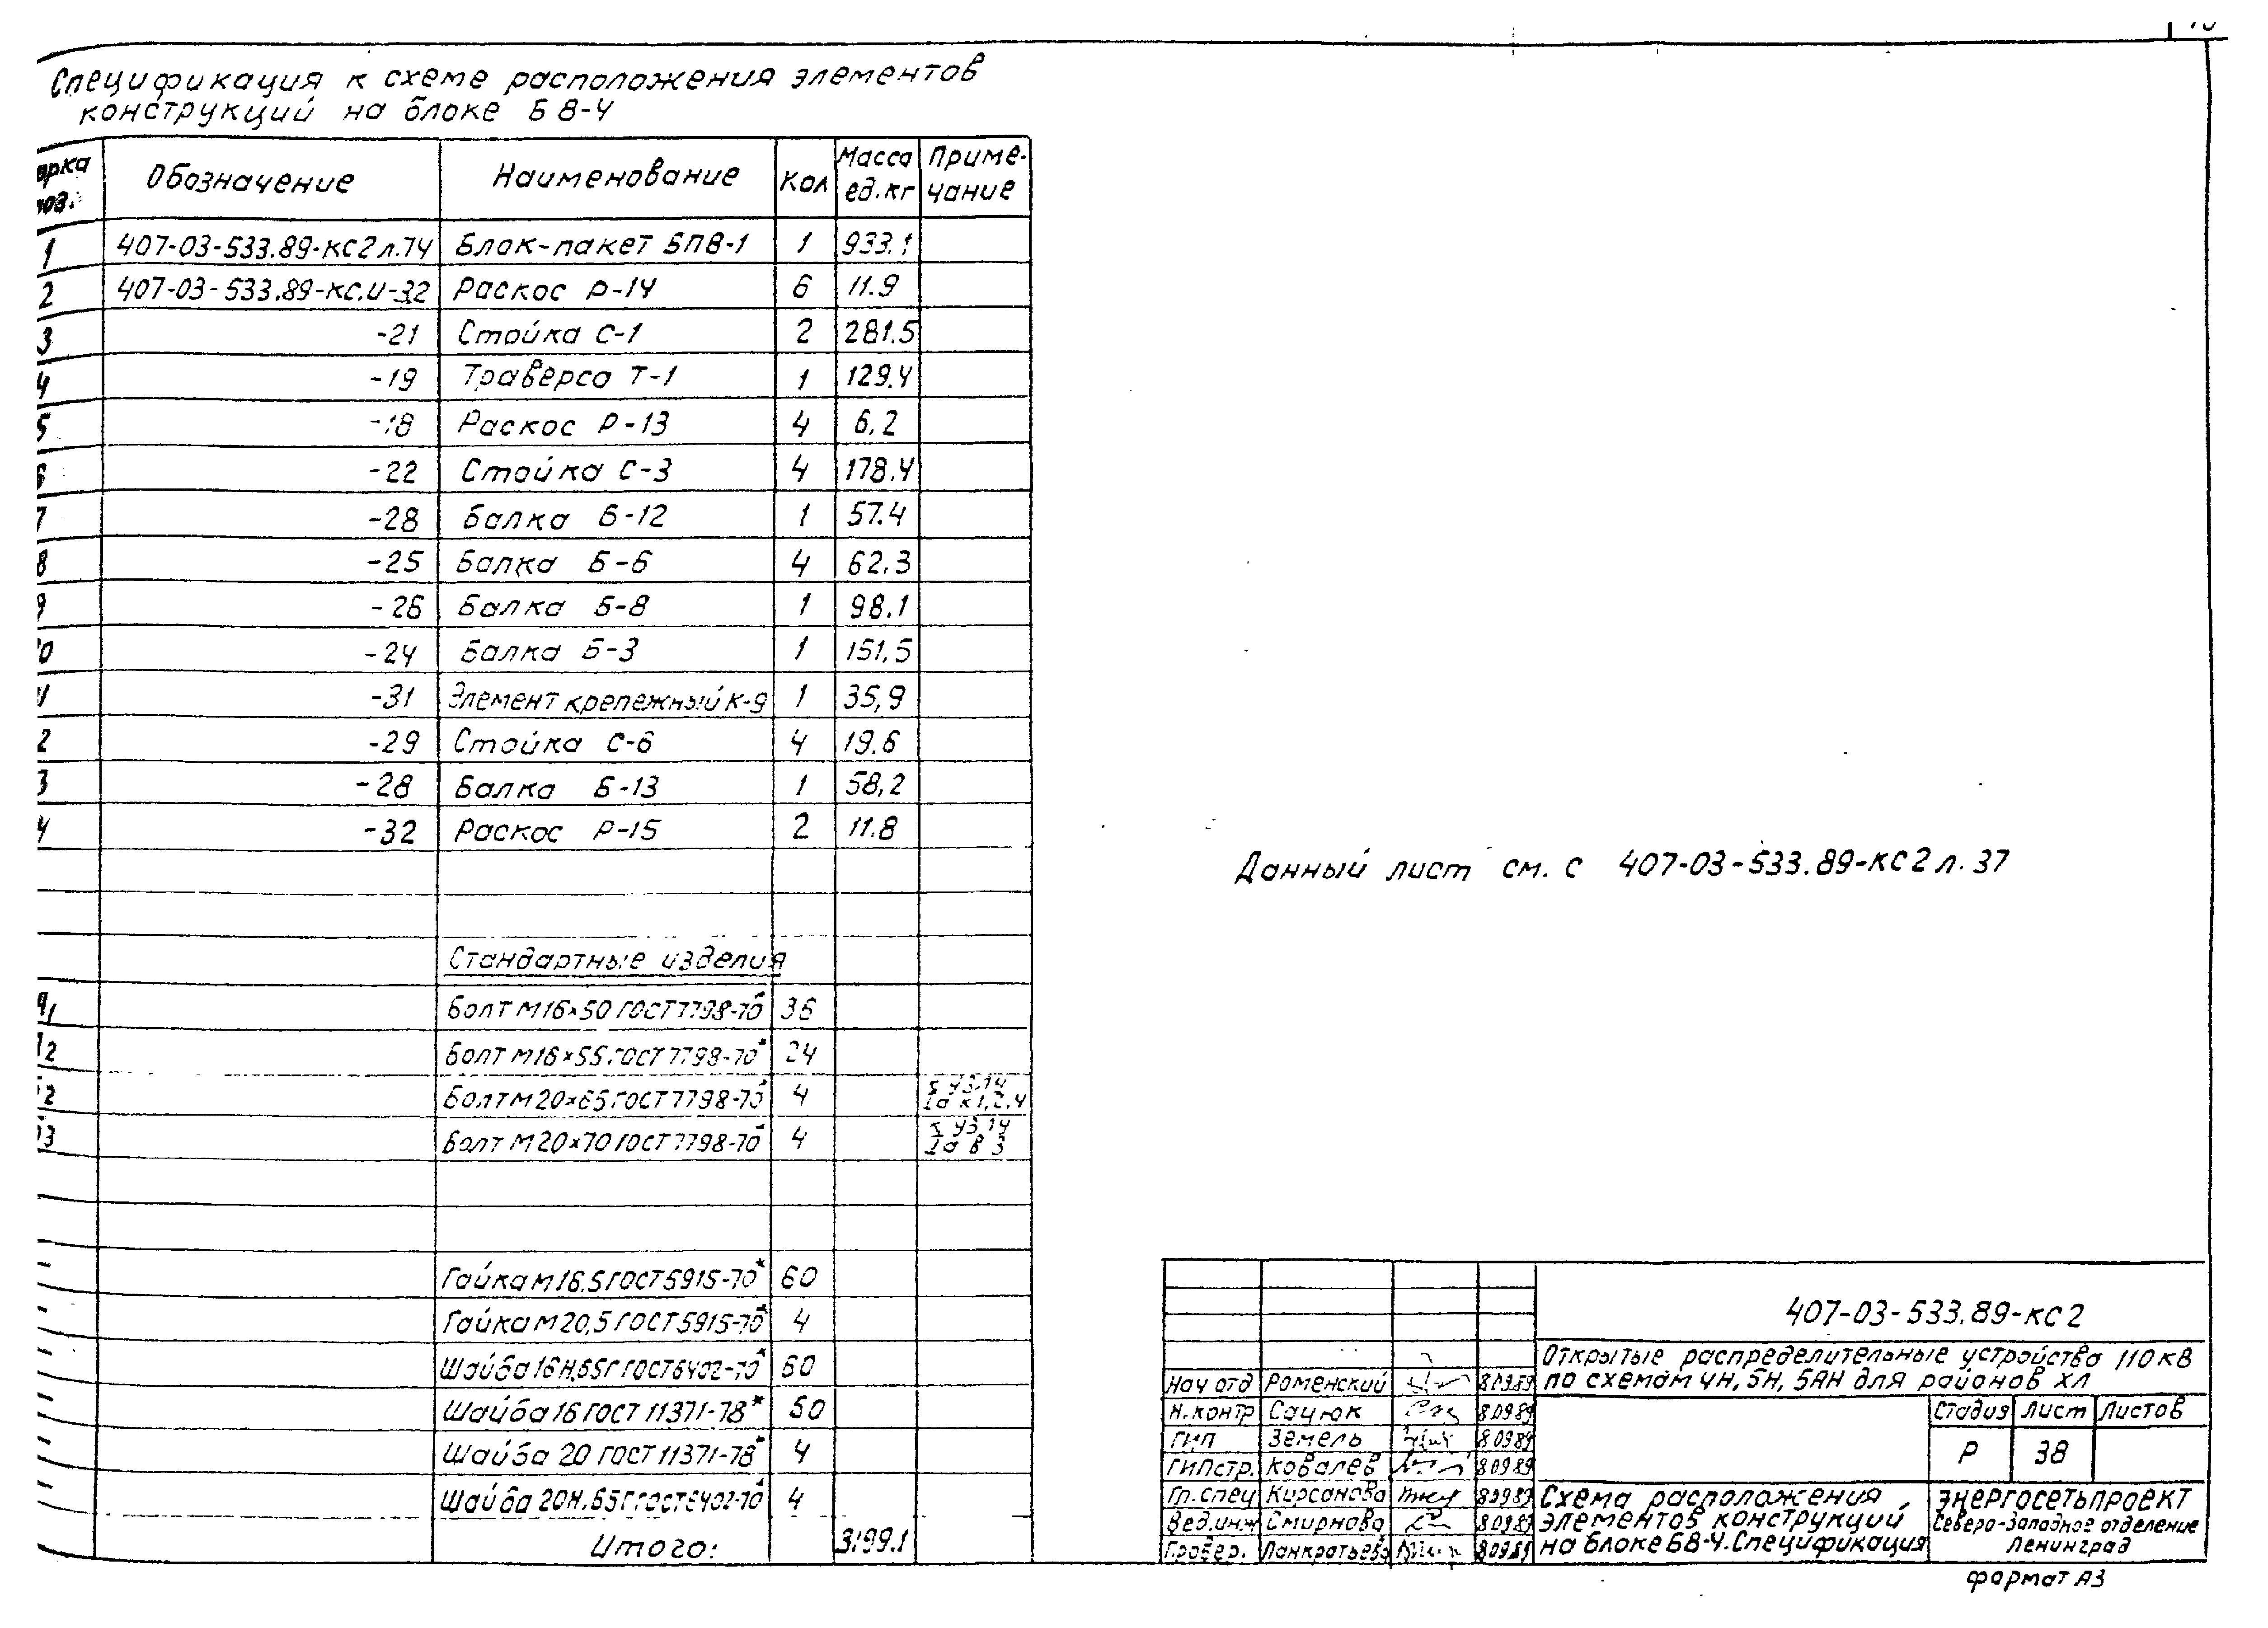 Спецификация к схеме расположения элементов
конструкций на блоке Б8-4
Обозначение Наименование Кол Масса ед.кг Приме-чание
1 407-03-533.89-КС2 л.74 Блок-пакет БП8-1 1 933.1
2 407-03-533.89-КС.И-32 Раскос Р-14 6 11.9
3 -21 Стойка С-1 2 281.5
4 -19 Траверса Т-1 1 129.4
5 -18 Раскос Р-13 4 6.2
6 -22 Стойка С-3 4 178.4
7 -28 Балка Б-12 1 57.4
8 -25 Балка Б-6 4 62.3
9 -26 Балка Б-8 1 98.1
10 -24 Балка Б-3 1 151,5
11 -31 Элемент крепежный К-9 1 35,9
2 -29 Стойка С-6 4 19.6
3 -28 Балка Б-13 1 58,2
4 -32 Раскос Р-15 2 11.8
Стандартные изделия
Болт М16×50 ГОСТ 7798-70* 36
Болт М16×55 ГОСТ 7798-70* 24
Болт М20×65 ГОСТ 7798-70* 4 к уз.14
Болт М20×70 ГОСТ 7798-70* 4 к уз.14
Гайка М16.5 ГОСТ 5915-70* 60
Гайка М20,5 ГОСТ 5915-70* 4
Шайба 16Н.65Г ГОСТ 6402-70* 60
Шайба 16 ГОСТ 11371-78* 60
Шайба 20 ГОСТ 11371-78* 4
Шайба 20Н.65Г ГОСТ 6402-70* 4
Итого: 3199.1
Данный лист см. с 407-03-533.89-КС2 л.37
407-03-533.89-КС2
Открытые распределительные устройства 110кВ
по схемам 4Н, 5Н, 5АН для районов ХЛ
Нач отд Роменский 8.09.89
Н.контр Сацюк 8.09.89
ГИП Земель 8.09.89
ГИПстр. Ковалев 8.09.89
Гл.спец Кирсанова 8.09.89
Вед.инж Смирнова 8.09.89
Провер. Панкратьева 8.09.89
Стадия Лист Листов
Р 38
Схема расположения
элементов конструкций
на блоке Б8-4. Спецификация
ЭНЕРГОСЕТЬПРОЕКТ
Северо-Западное отделение
Ленинград
формат А3